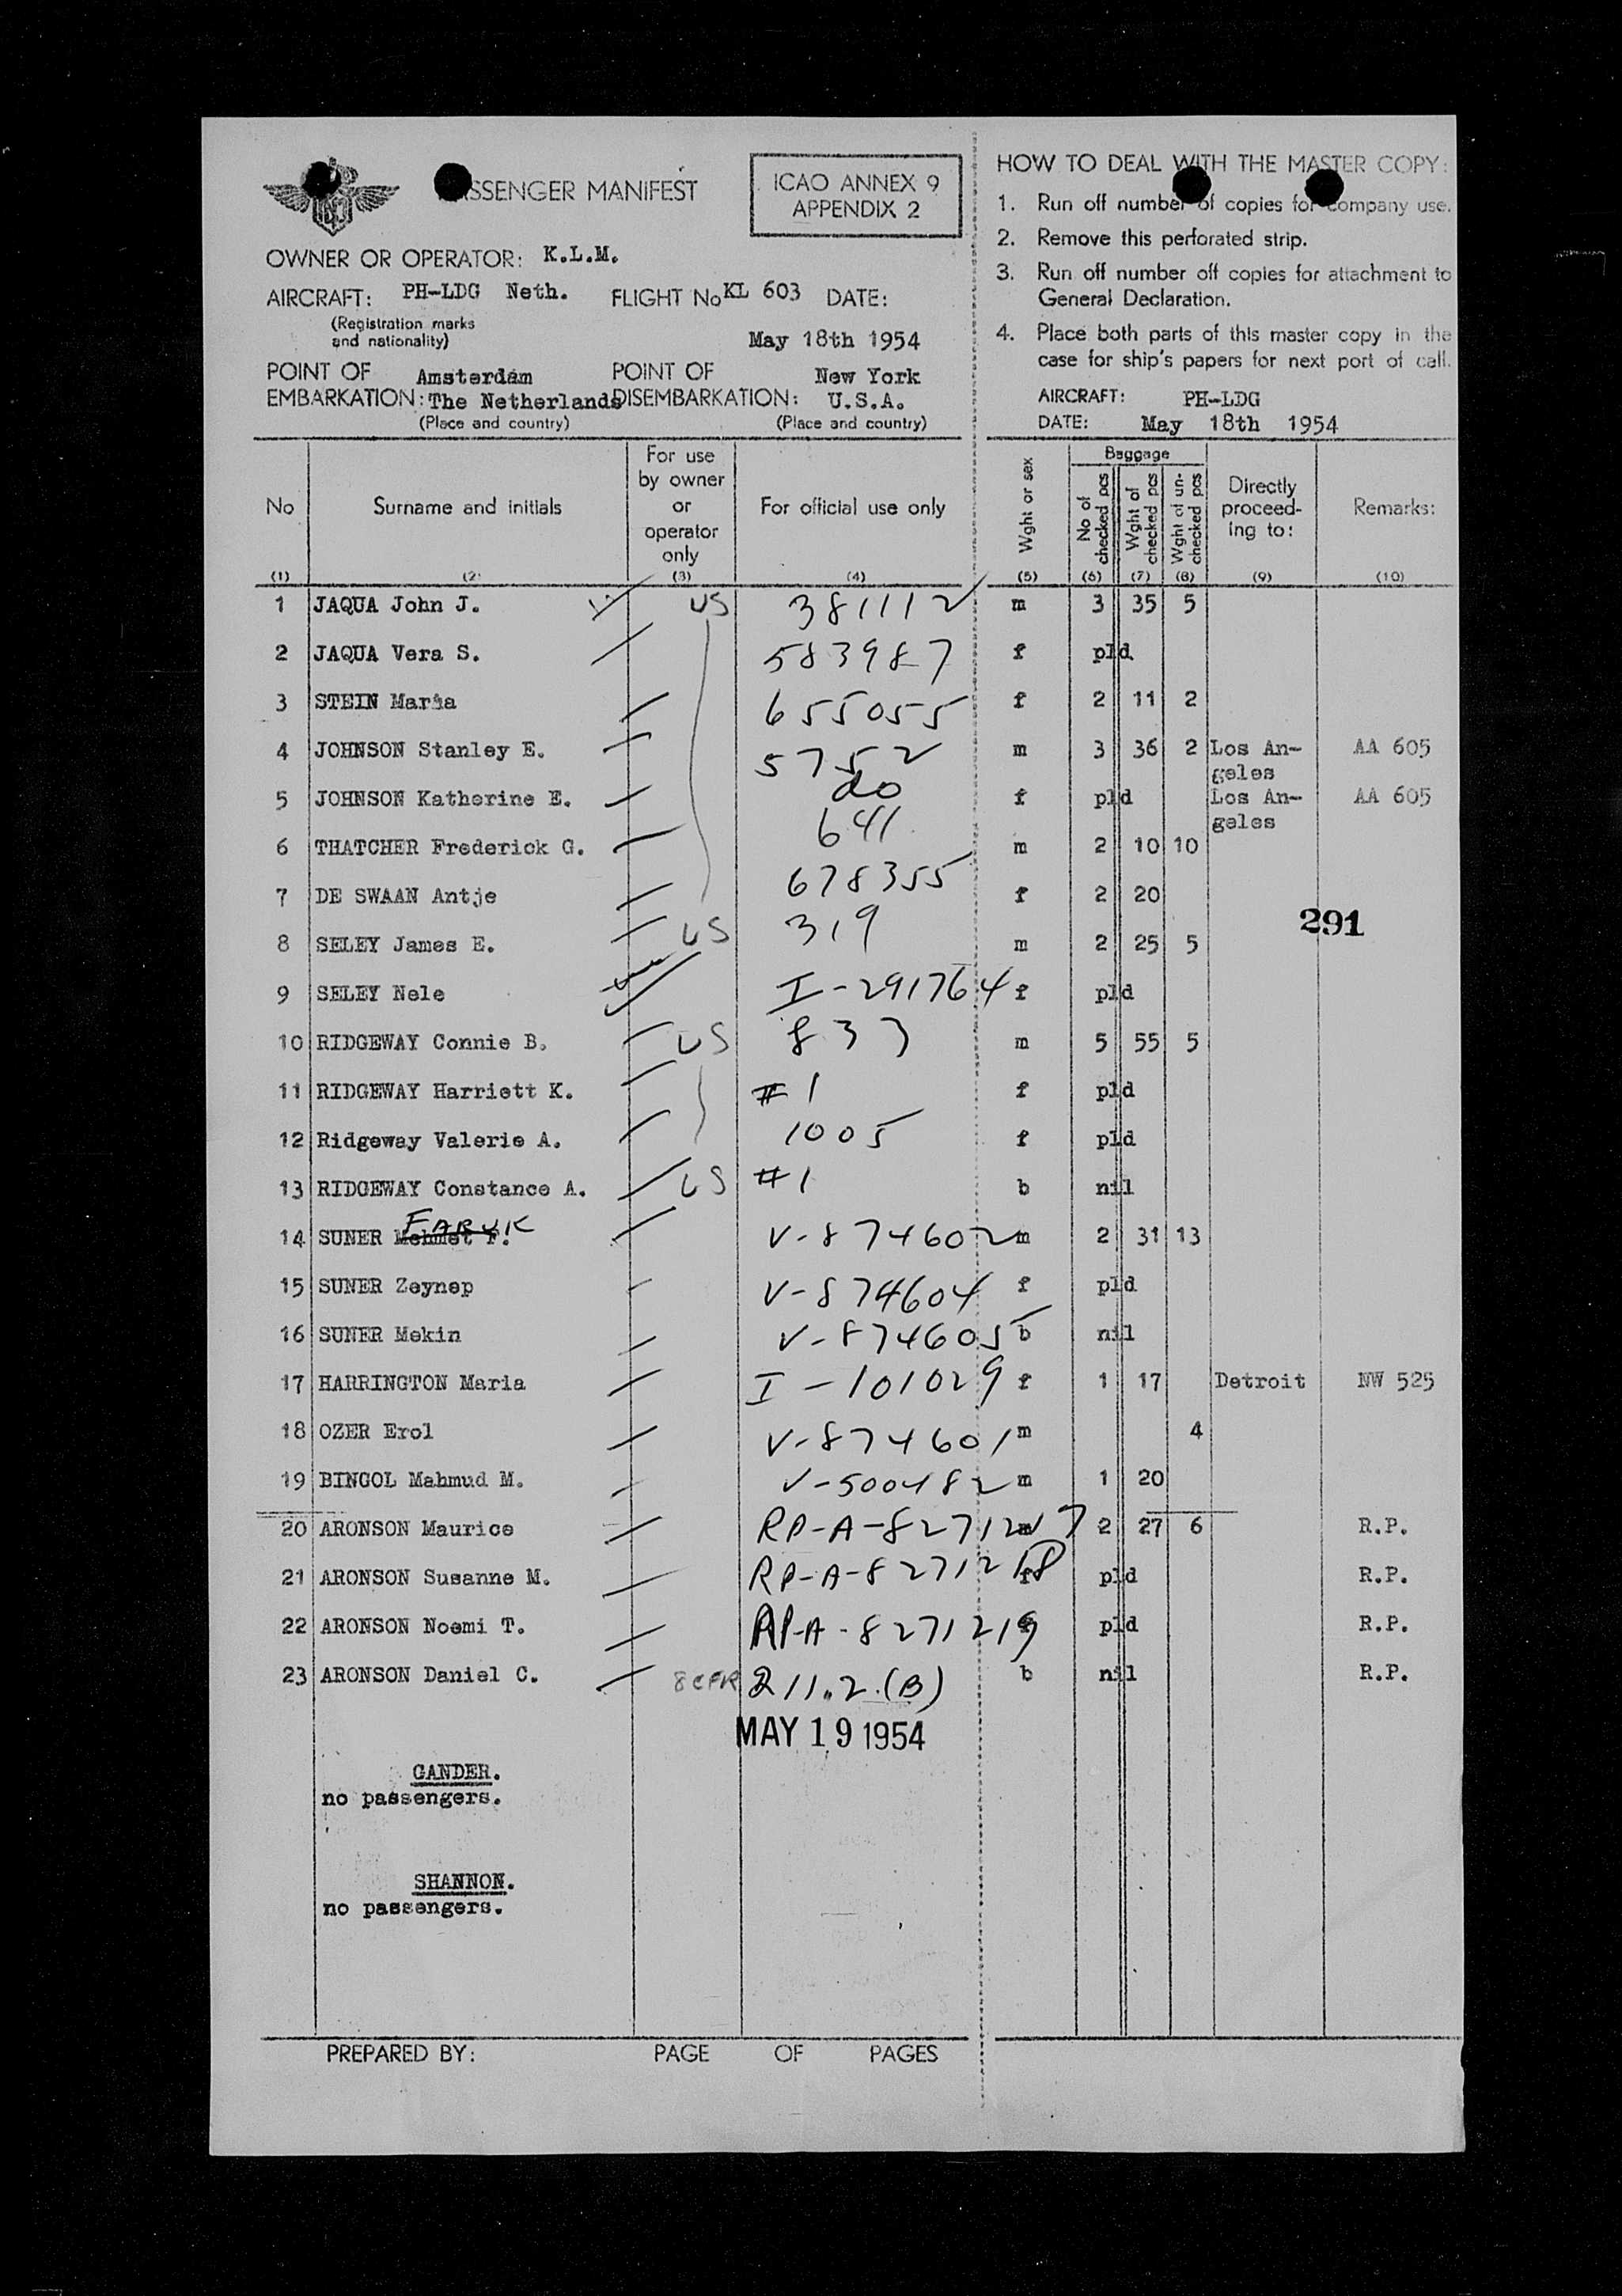 PASSENGER MANIFEST
ICAO ANNEX 9
APPENDIX 2
OWNER OR OPERATOR: K.L.M.
AIRCRAFT: PH-LDG Neth. FLIGHT No KL 603 DATE:
(Registration marks
and nationality)
May 18th 1954
POINT OF Amsterdam POINT OF New York
EMBARKATION: The Netherlands DISEMBARKATION: U.S.A.
(Place and country) (Place and country)
HOW TO DEAL WITH THE MASTER COPY:
1. Run off number of copies for company use.
2. Remove this perforated strip.
3. Run off number off copies for attachment to
General Declaration.
4. Place both parts of this master copy in the
case for ship's papers for next port of call.
AIRCRAFT: PH-LDG
DATE: May 18th 1954
No Surname and initials For use by owner or operator only For official use only Wght or sex Baggage No of checked pcs Wght of checked pcs Wght of un-checked pcs Directly proceed-ing to: Remarks:
(1) (2) (3) (4) (5) (6) (7) (8) (9) (10)
1 JAQUA John J. US 381112 m 3 35 5
2 JAQUA Vera S. 583987 f pld
3 STEIN Maria 655055 f 2 11 2
4 JOHNSON Stanley E. 5752 m 3 36 2 Los An-geles AA 605
5 JOHNSON Katherine E. do f pld Los An-geles AA 605
6 THATCHER Frederick G. 641 m 2 10 10
7 DE SWAAN Antje 678355 f 2 20
291
8 SELEY James E. US 319 m 2 25 5
9 SELEY Nele I-291764 f pld
10 RIDGEWAY Connie B. US 833 m 5 55 5
11 RIDGEWAY Harriett K. #1 f pld
12 Ridgeway Valerie A. 1005 f pld
13 RIDGEWAY Constance A. US #1 b nil
14 SUNER Mehmet F. FARUK V-874602 m 2 31 13
15 SUNER Zeynep V-874604 f pld
16 SUNER Mekin V-874605 b nil
17 HARRINGTON Maria I-101029 f 1 17 Detroit NW 525
18 OZER Erol V-874601 m 4
19 BINGOL Mahmud M. V-500482 m 1 20
20 ARONSON Maurice RP-A-8271217 m 2 27 6 R.P.
21 ARONSON Susanne M. RP-A-8271218 f pld R.P.
22 ARONSON Noemi T. RP-A-8271219 pld R.P.
23 ARONSON Daniel C. 8 CFR 211.2.(B) b nil R.P.
MAY 19 1954
GANDER.
no passengers.
SHANNON.
no passengers.
PREPARED BY: PAGE OF PAGES